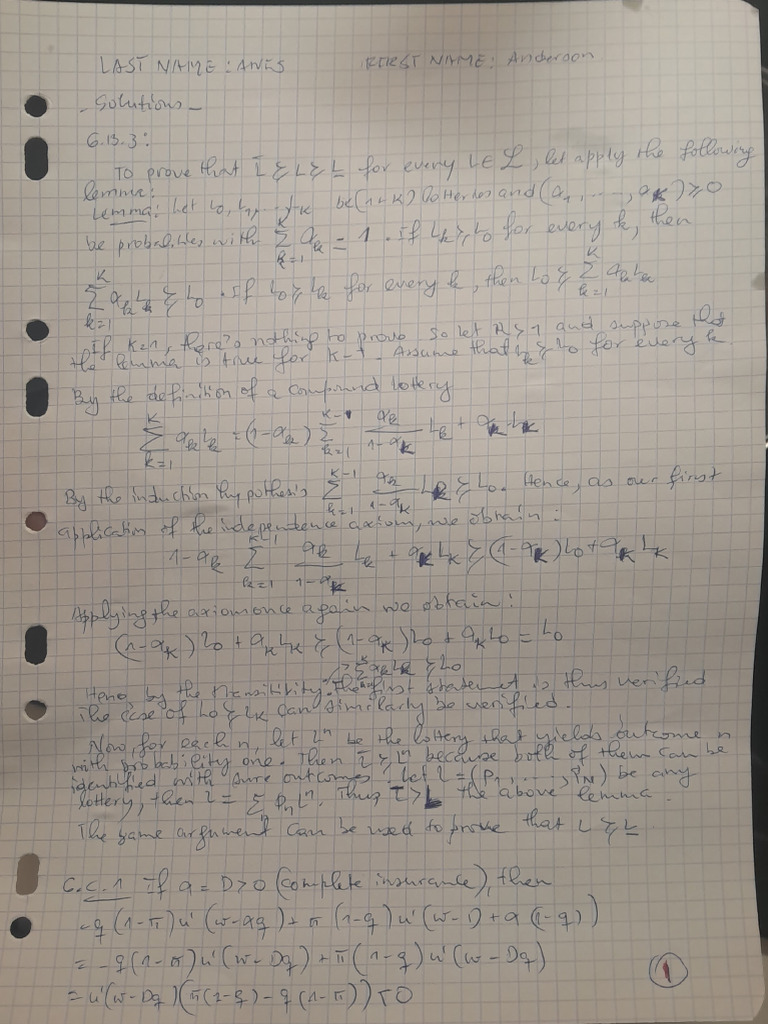 LAST NAME : ANES FIRST NAME: Anderson
- Solutions -
6.B.3:
To prove that L̄ ≿ L ≿ L̲ for every L ∈ ℒ, let apply the following
lemma:
Lemma: Let L₀, L₁, ..., L_K be (1+K) lotteries and (α₁, ..., α_K) ≥ 0
be probabilities with ∑_{k=1}^{K} α_k = 1. If L_k ≿ L₀ for every k, then
∑_{k=1}^{K} α_k L_k ≿ L₀. If L₀ ≿ L_k for every k, then L₀ ≿ ∑_{k=1}^{K} α_k L_k
If K=1, there's nothing to prove so let K > 1 and suppose that
the lemma is true for K-1. Assume that L_k ≿ L₀ for every k
By the definition of a compound lottery
∑_{k=1}^{K} α_k L_k = (1-α_k) ∑_{k=1}^{K-1} α_k/(1-α_K) L_k + α_K L_K
By the induction hypothesis ∑_{k=1}^{K-1} α_k/(1-α_K) L_k ≿ L₀. Hence, as our first
application of the independence axiom, we obtain:
1-α_k ∑_{k=1}^{K-1} α_k/(1-α_K) L_k + α_K L_K ≿ (1-α_K) L₀ + α_K L_K
Applying the axiom once again we obtain:
(1-α_K) L₀ + α_K L_K ≿ (1-α_K) L₀ + α_K L₀ = L₀
→ ∑ α_k L_k ≿ L₀
Hence by the transitivity. The first statement is thus verified
The case of L₀ ≿ L_K can similarly be verified.
Now, for each n, let Lⁿ be the lottery that yields outcome n
with probability one. Then L̄ ≿ Lⁿ because both of them can be
identified with sure outcomes. Let L = (P₁, ..., P_N) be any
lottery, then L = ∑ P_n Lⁿ. Thus L̄ ≿ L the above lemma.
The same argument can be used to prove that L ≿ L̲
6.C.1 If α = D > 0 (complete insurance), then
-q (1-π) u' (w-αq) + π (1-q) u' (w-D + α (1-q))
= -q (1-π) u' (w-Dq) + π (1-q) u' (w-Dq)
= u' (w-Dq) (π(1-q) - q (1-π)) < 0
1